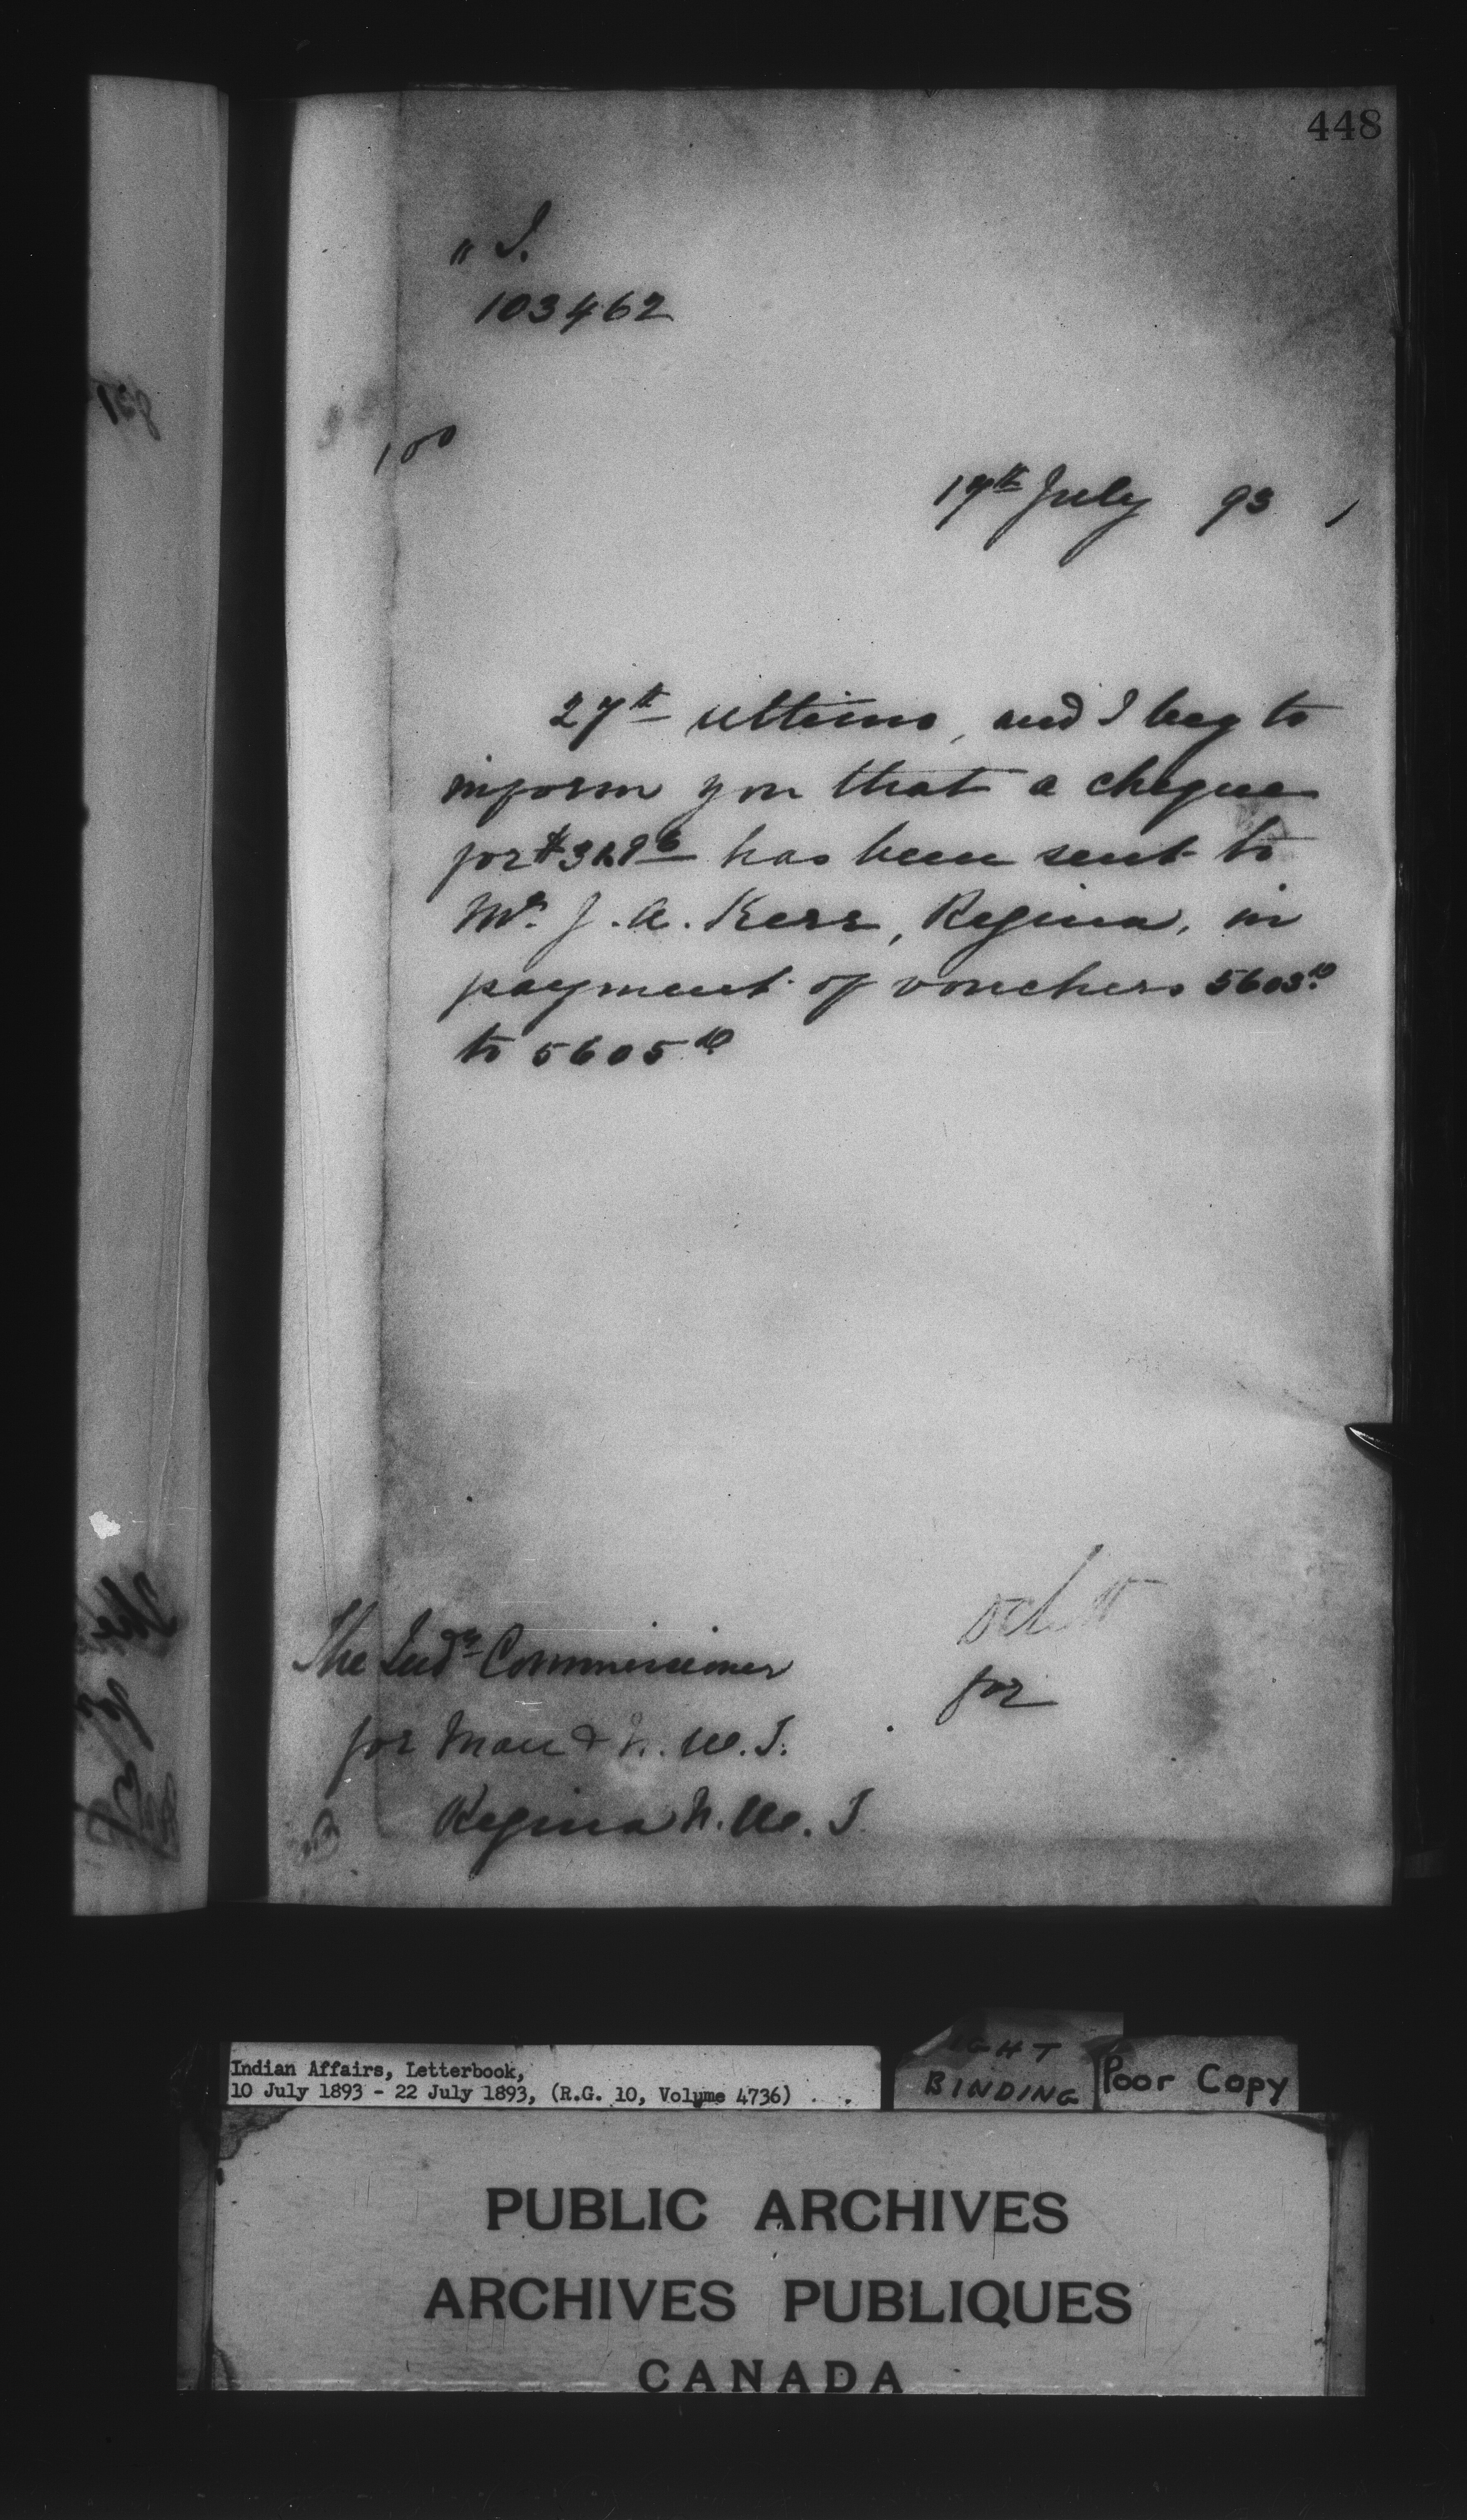 448
" I.
103462
100
July 93
27th ultimo, and I beg to
inform you that a cheque
for has been sent to
Mr. J. A. Kerr, Regina, in
payment of vouchers 5603
to 5605
The Indn Commissioner
for
for Man & N. W. T.
Regina N. W. T.
Indian Affairs, Letterbook,
10 July 1893 - 22 July 1893, (R.G. 10, Volume 4736)
BINDING
Poor Copy
PUBLIC ARCHIVES
ARCHIVES PUBLIQUES
CANADA